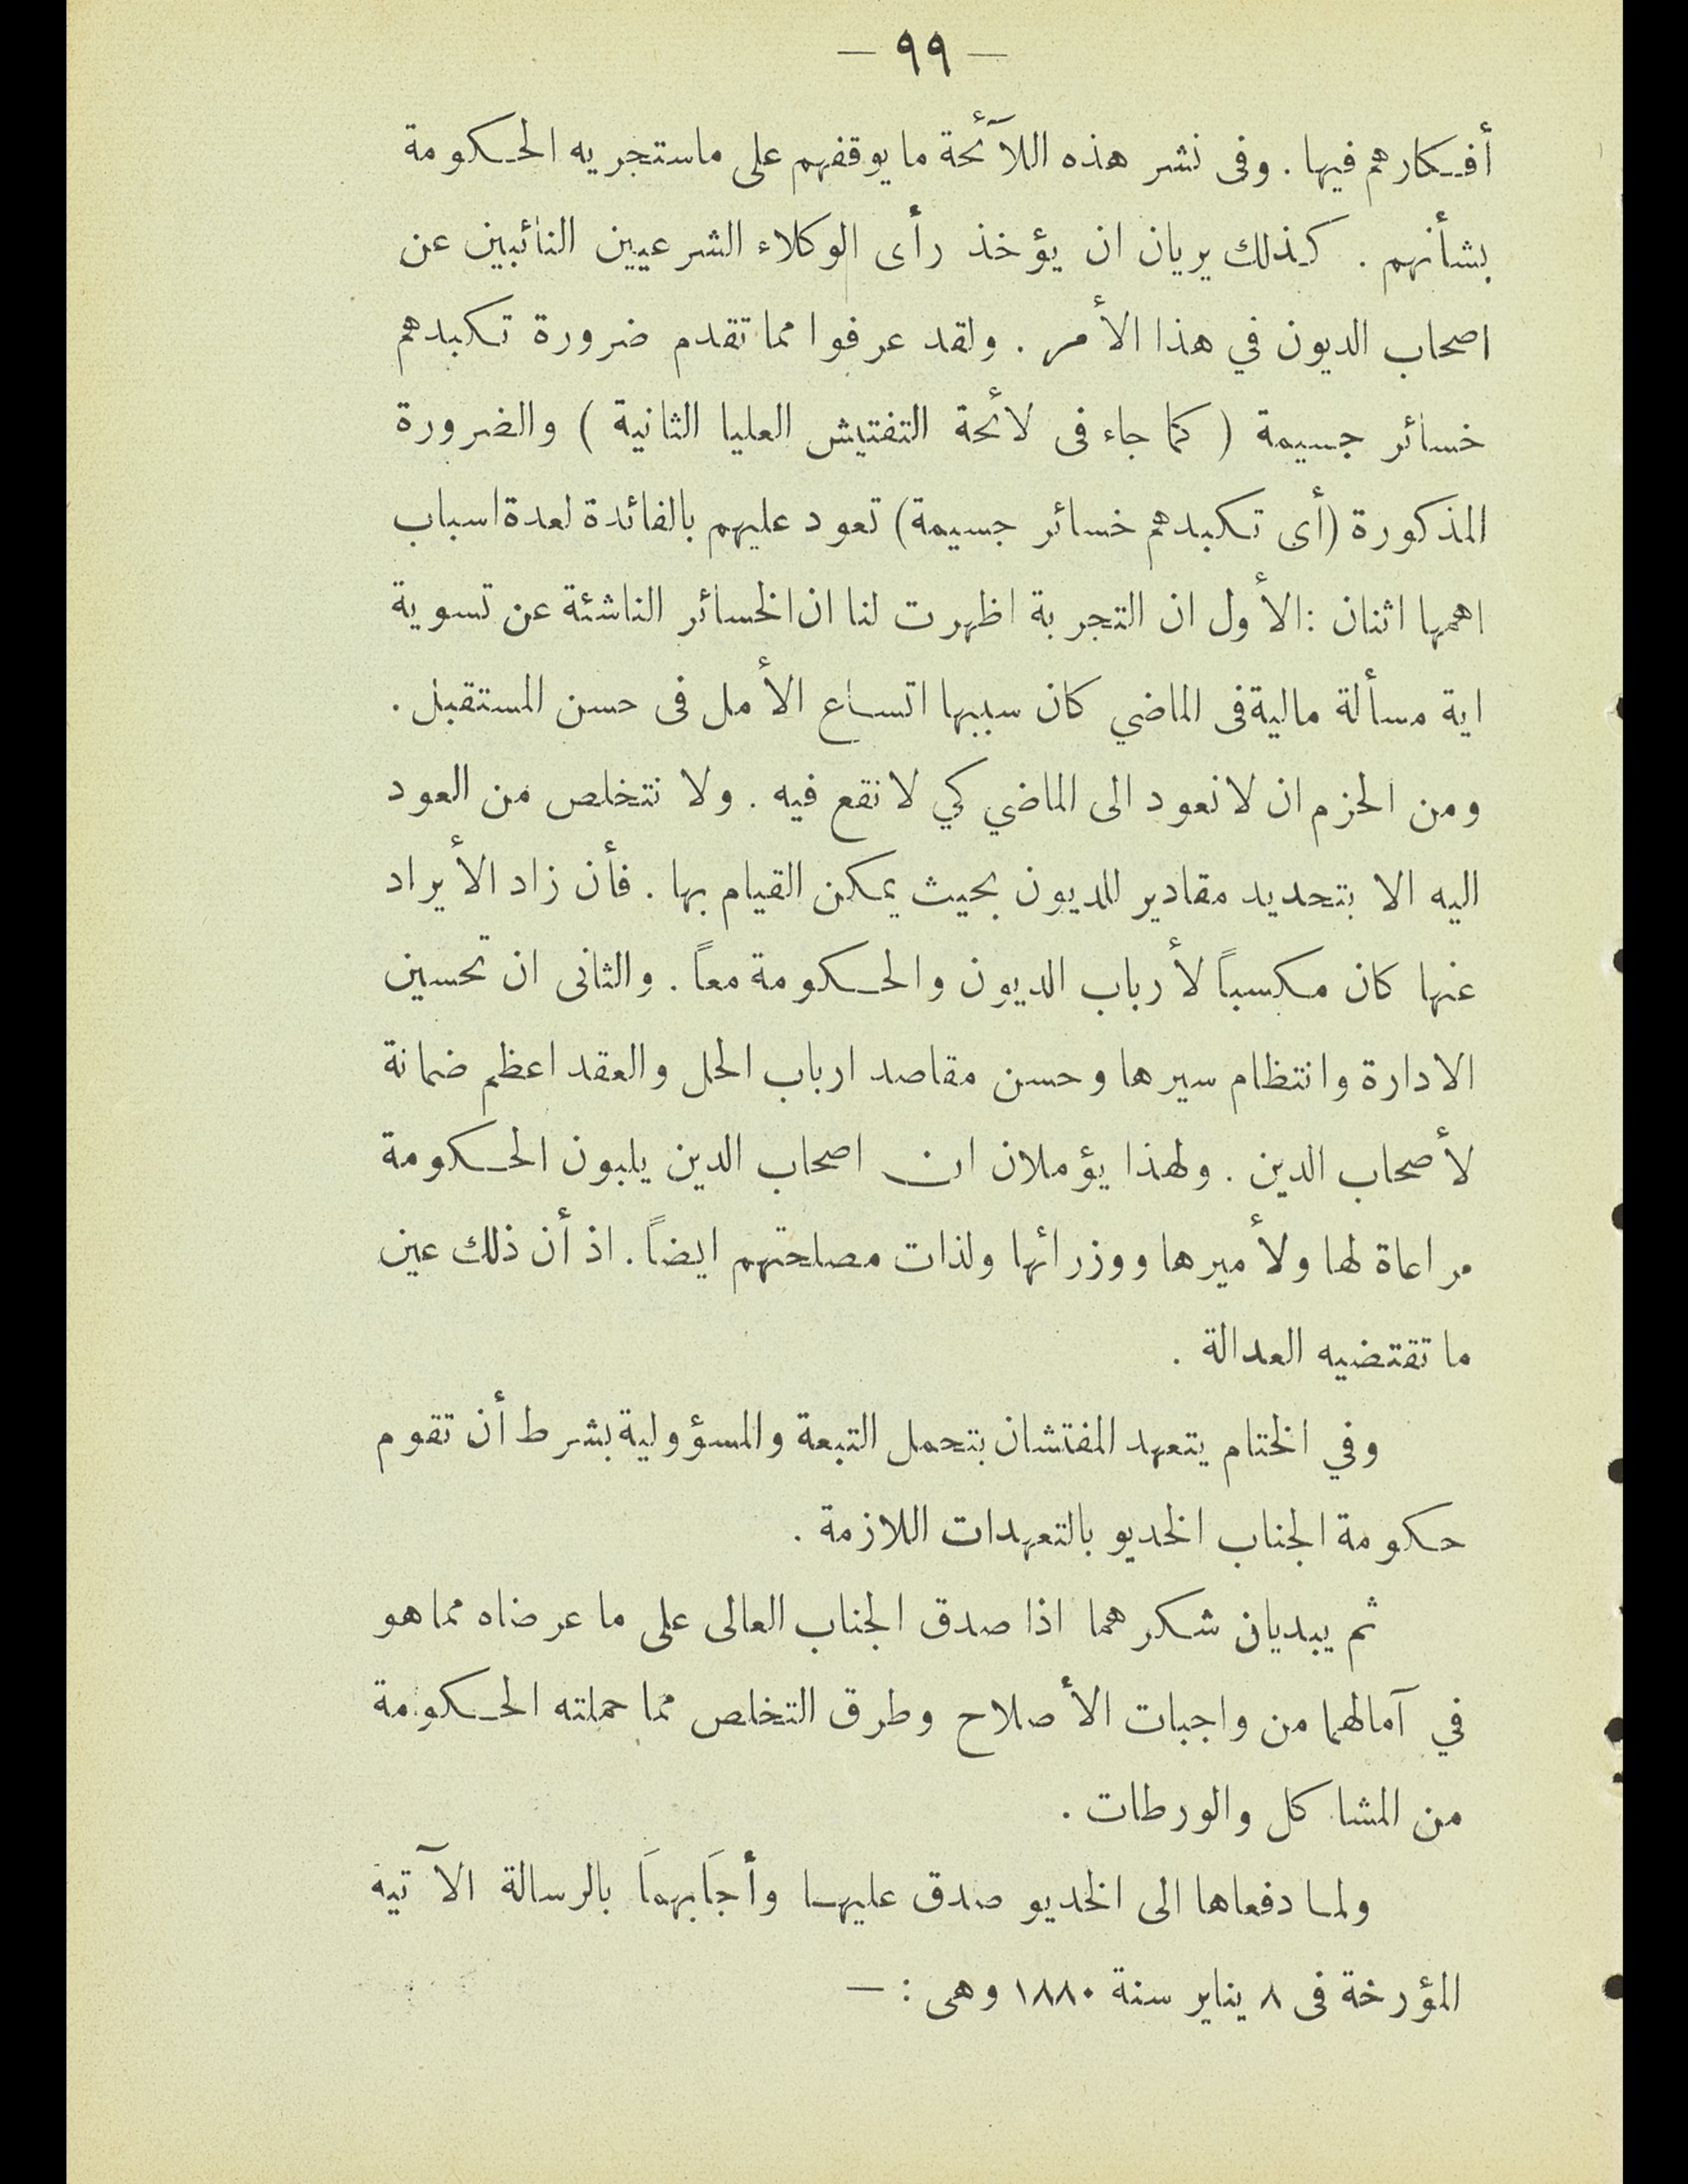 — ٩٩ —
أفكارهم فيها . وفى نشر هذه اللآئحة ما يوقفهم على ماستجريه الحكومة
بشأنهم . كذلك يريان ان يؤخذ رأى الوكلاء الشرعيين النائبين عن
اصحاب الديون في هذا الأمر . ولقد عرفوا مما تقدم ضرورة تكبدهم
خسائر جسيمة ( كما جاء فى لائحة التفتيش العليا الثانية ) والضرورة
المذكورة (أى تكبدهم خسائر جسيمة) تعود عليهم بالفائدة لعدة اسباب
اهمها اثنان : الأول ان التجربة اظهرت لنا ان الخسائر الناشئة عن تسوية
اية مسألة مالية فى الماضي كان سببها اتساع الأمل فى حسن المستقبل .
ومن الحزم ان لا نعود الى الماضي كي لا نقع فيه . ولا نتخلص من العود
اليه الا بتحديد مقادير للديون بحيث يمكن القيام بها . فأن زاد الأيراد
عنها كان مكسباً لأرباب الديون والحكومة معاً . والثانى ان تحسين
الادارة وانتظام سيرها وحسن مقاصد ارباب الحل والعقد اعظم ضمانة
لأصحاب الدين . ولهذا يؤملان ان اصحاب الدين يلبون الحكومة
مراعاة لها ولأميرها ووزرائها ولذات مصلحتهم ايضاً . اذ أن ذلك عين
ما تقتضيه العدالة .
وفي الختام يتعهد المفتشان بتحمل التبعة والمسؤولية بشرط أن تقوم
حكومة الجناب الخديو بالتعهدات اللازمة .
ثم يبديان شكرهما اذا صدق الجناب العالى على ما عرضاه مما هو
في آمالهما من واجبات الأصلاح وطرق التخلص مما حملته الحكومة
من المشاكل والورطات .
ولما دفعاها الى الخديو صدق عليها وأجَابهمَا بالرسالة الآتية
المؤرخة فى ٨ يناير سنة ١٨٨٠ وهى : —